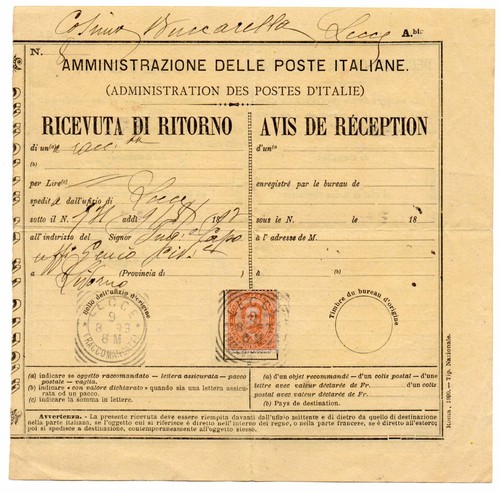 Cosimo Buccarella Lecce A.bis
N.
AMMINISTRAZIONE DELLE POSTE ITALIANE.
(ADMINISTRATION DES POSTES D'ITALIE)
RICEVUTA DI RITORNO
di un(a)
(b)
per Lire(c)
spedita dall'ufizio di Lecce
sotto il N. addì 18
all'indirizzo del Signor Ing. Capo
Genio Civ.
(Provincia di ) a
Bollo dell'ufizio d'origine
LECCE
9
8 93
8 M
RACCOMANDATE
AVIS DE RÉCEPTION
d'un(a)
(b)
enregistré par le bureau de
sous le N. le 18
à l'adresse de M.
à
LECCE
9
8
8 M
Timbre du bureau d'origine
(a) indicare se oggetto raccomandato — lettera assicurata — pacco
postale — vaglia.
(b) indicare « con valore dichiarato » quando sia una lettera assicu-
rata od un pacco.
(c) indicare la somma in lettere.
(a) d'un objet recommandé — d'un colis postal — d'une
lettre avec valeur déclarée de Fr. d'un colis
postal avec valeur déclarée de Fr.
(b) Pays de destination.
Avvertenza. - La presente ricevuta deve essere riempita davanti dall'ufizio mittente e di dietro da quello di destinazione
nella parte italiana, se l'oggetto cui si riferisce è diretto nell'interno del regno, o nella parte francese, se è diretto all'estero; poi
si spedisce a destinazione, contemporaneamente all'oggetto stesso.
Roma, 1890. — Tip. Nazionale.